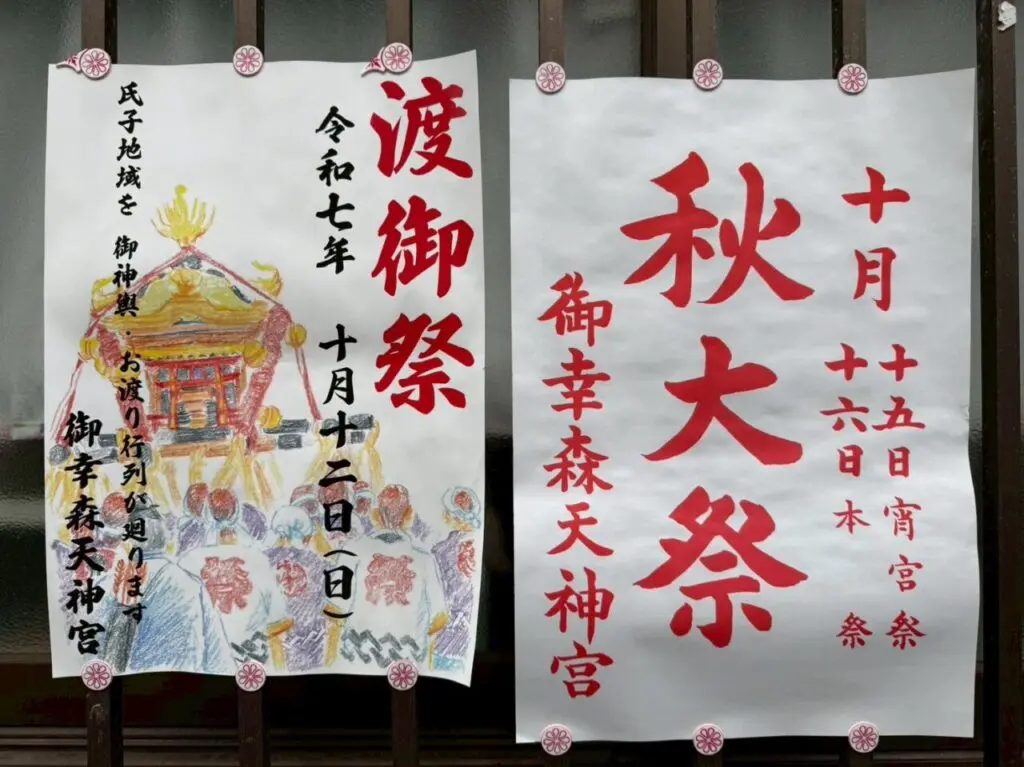 渡御祭
令和七年 十月十二日(日)
氏子地域を 御神輿・お渡り行列が廻ります
御幸森天神宮
祭
祭
十月
十五日宵宮祭
十六日本祭
秋大祭
御幸森天神宮